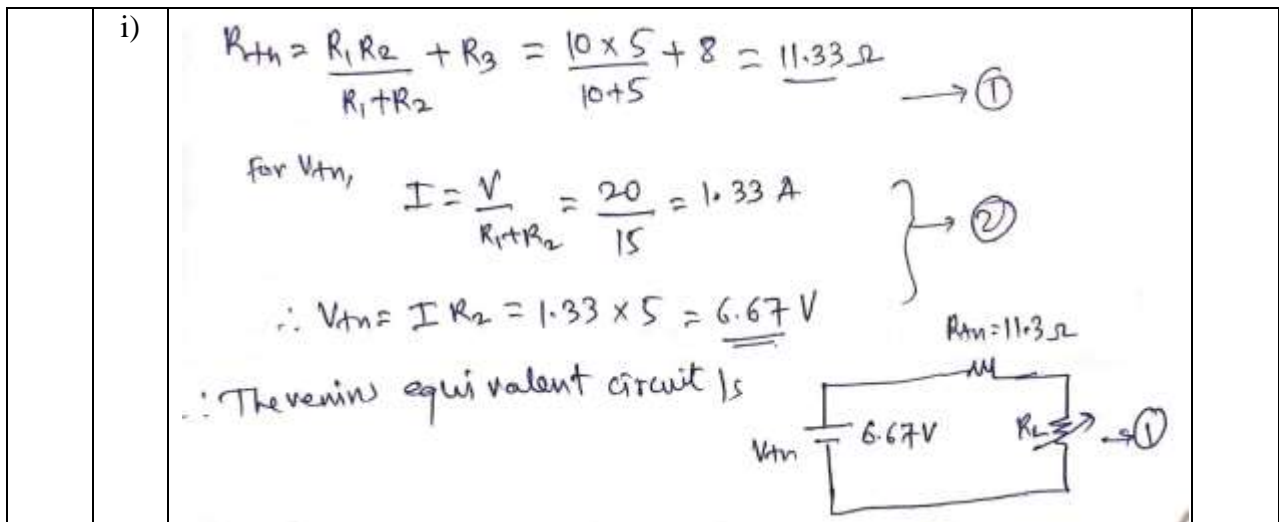 i)
Rth = R1 R2 / R1+R2 + R3 = 10 × 5 / 10+5 + 8 = 11.33 Ω → ①
for Vth,
I = V / R1+R2 = 20 / 15 = 1.33 A } → ②
∴ Vth = I R2 = 1.33 × 5 = 6.67 V
∴ Thevenins equivalent circuit is
Rth = 11.3 Ω
Vth 6.67V RL → ①